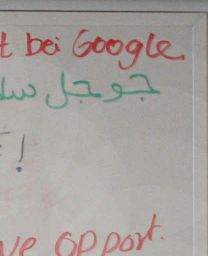 t bei Google.
جوجل
!
ve opport.